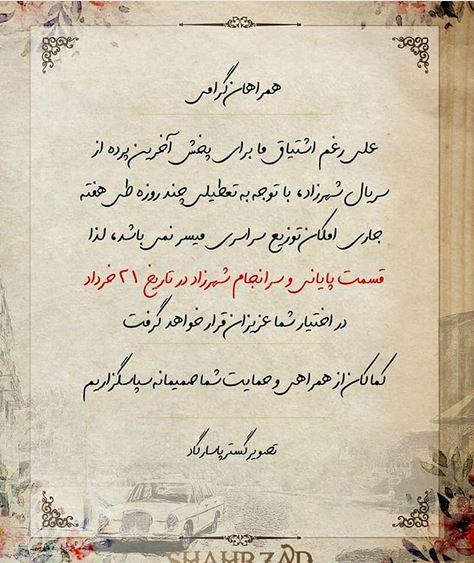 همراهان گرامی
علی رغم اشتیاق ما برای پخش آخرین پرده از
سریال شهرزاد، با توجه به تعطیلی چند روزه طی هفته
جاری امکان توزیع سراسری میسر نمی باشد، لذا
قسمت پایانی و سرانجام شهرزاد در تاریخ ۲۱ خرداد
در اختیار شما عزیزان قرار خواهد گرفت
کماکان از همراهی و حمایت شما صمیمانه سپاسگزاریم
تصویر گستر پاسارگاد
SHAHRZAD